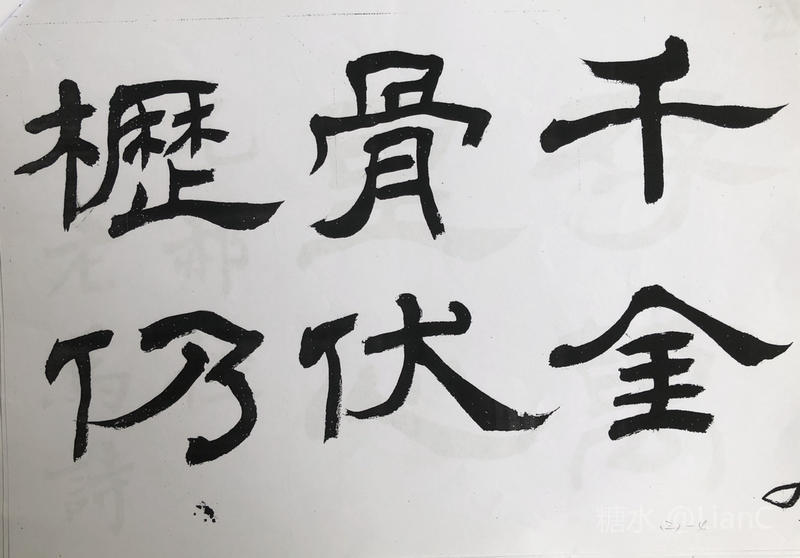 千金
骨伏
櫪仍
糖水 @LianC